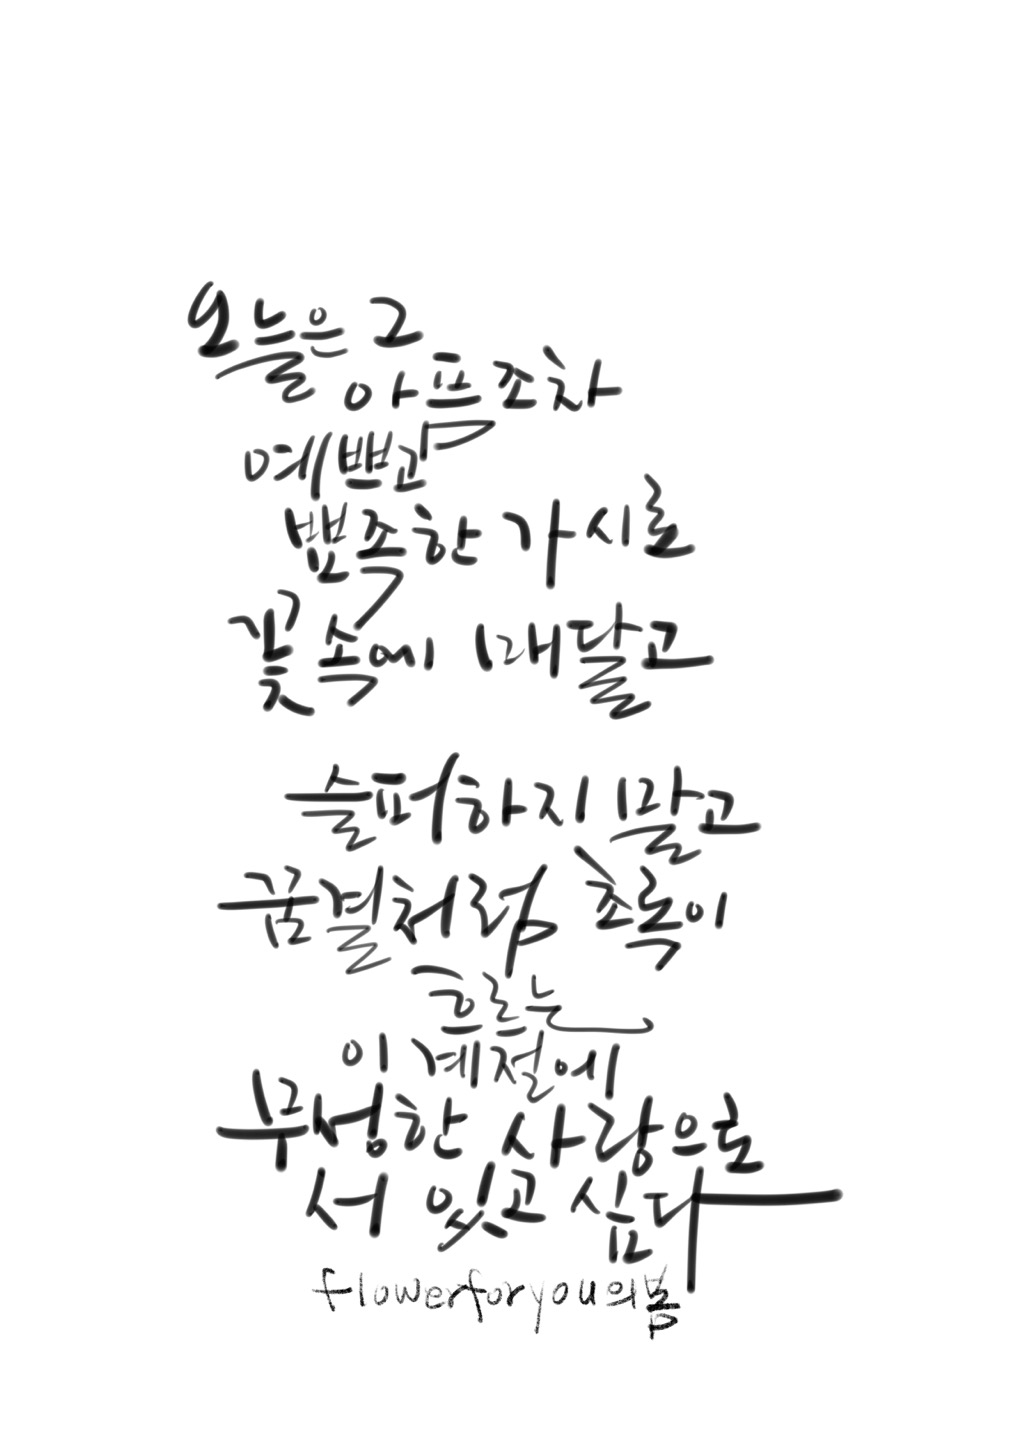 오늘은 그
아픔조차
예쁘고
뾰족한 가시로
꽃 속에 매달고
슬퍼하지 말고
꿈결처럼 초록이
흐르는
이 계절에
무성한 사랑으로
서 있고 싶다
flowerforyou의 봄